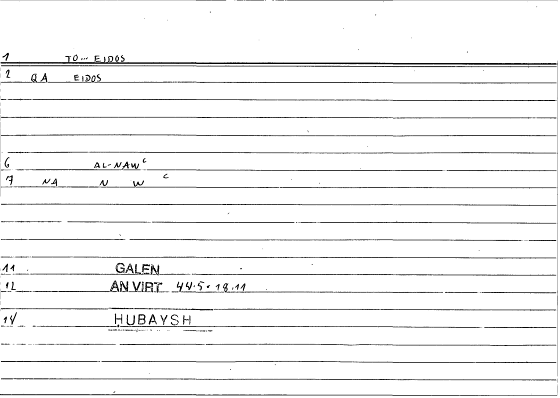 1 TO... EIDOS
2 QA EIDOS
6 AL-NAWᶜ
7 NA N W ᶜ
11 GALEN
12 AN VIRT 44.5 • 18.11
14 HUBAYSH